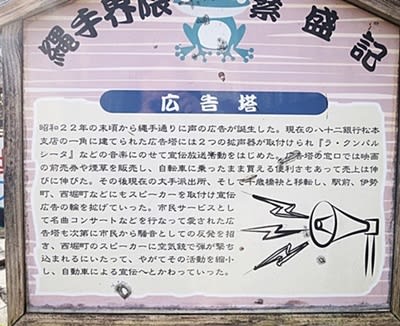 縄手界隈繁盛記
広告塔
昭和22年の末頃から縄手通りに声の広告が誕生した。現在の八十二銀行松本
支店の一角に建てられた広告塔には2つの拡声器が取付けられ『ラ・クンパル
シータ』などの音楽にのせて宣伝放送活動をはじめた。広告塔の窓口では映画
の前売券や煙草を販売し、自転車に乗ったまま買える便利さもあって売上は伸
びに伸びた。その後現在の太手派出所、そして千歳橋袂と移転し、駅前、伊勢
町、西堀町などにもスピーカーを取付け宣伝
広告の輪を拡げていった。市民サービスとし
て名曲コンサートなどを行なって愛された広
告塔も次第に市民から騒音としての反発を招
き、西堀町のスピーカーに空気銃で弾が撃ち
込まれるにいたって、やがてその活動を縮小
し、自動車による宣伝へとかわっていった。